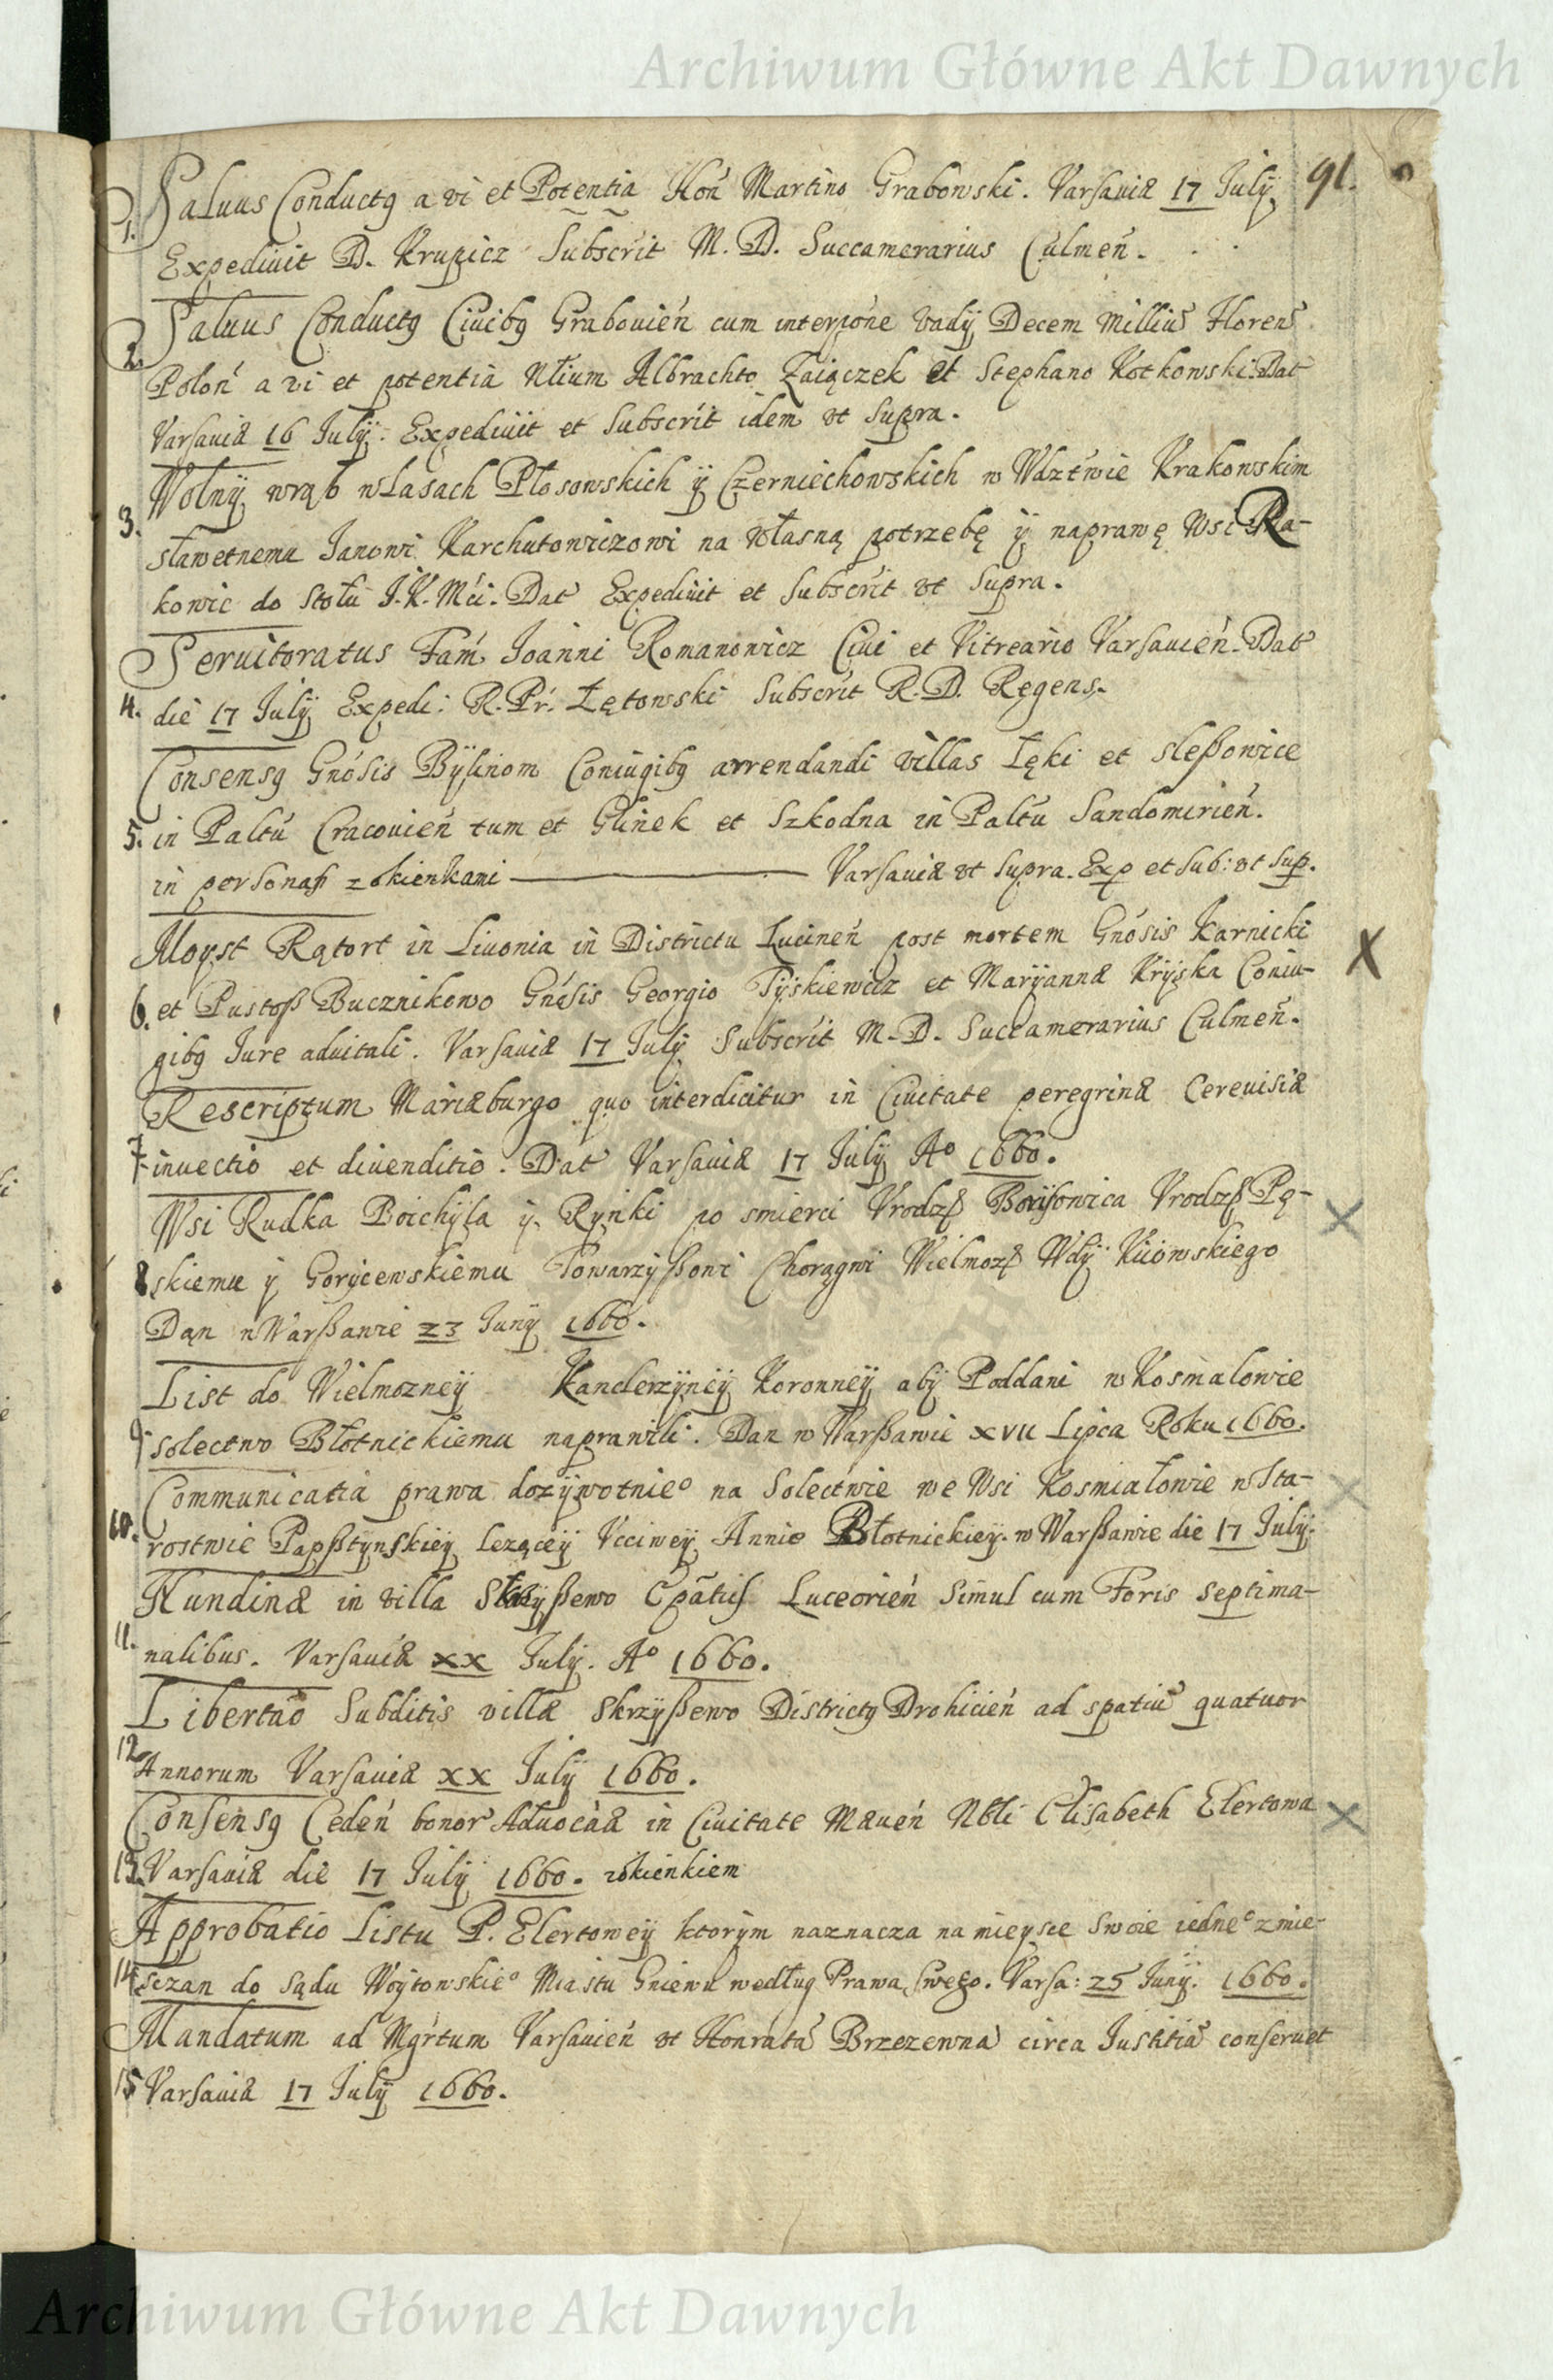 Archiwum Główne Akt Dawnych
91.
1. Saluus Conductq a vi et Potentia Hon Martino Grabowski. Varsauiæ 17 Julij
Expediuit D. Krupicz Subscrit M. D. Succamerarius Culmeń.
2. Saluus Conductq Ciuibq Grabouień cum interpone vadij Decem Milliu Floren
Poloń a vi et potentia Nlium Albrachto Zaiączek et Stephano Kotkowski Dat
Varsauiæ 16 Julij. Expediuit et Subscrit idem vt Supra.
3. Wolny wrąb w Lasach Płosowskich ÿ Czerniechowskich w Wdztwie Krakowskim
sławetnemu Janowi Karchutowiczowi na własną potrzebę ÿ naprawę Wsi Ra-
kowic do Stołu J.K.Mci. Dat Expediuit et Subscrit vt Supra.
4. Seruitoratus Fam Joanni Romanowicz Ciui et Vitreario Varsauień. Dat
die 17 Julij Expedi: R. Pr. Łętowski Subscrit R. D. Regens.
5. Consensq Gnosis Bÿlinom Coniugibq arrendandi villas Łęki et Sleßowice
in Paltu Cracouień tum et Glinek et Szkodna in Paltu Sandomirień.
in personaß z okienkami — Varsauiæ vt Supra. Exp et Sub: vt Sup.
6. Moyst Rątort in Liuonia in Districtu Lucineń post mortem Gnosis Karnicki
et Pustoß Bucznikowo Gnosis Georgio Tÿskiewicz et Marÿannæ Krÿska Coniu-
gibq Jure aduitali. Varsauiæ 17 Julij Subscrit M. D. Succamerarius Culmeń.
7. Rescriptum Mariæburgo quo interdicitur in Ciuitate peregrinæ Cereuisiæ
inuectio et diuenditio. Dat Varsauiæ 17 Julij Ao 1660.
8 Wsi Rudka Boichÿła ÿ Rynki po smierci Vrodzß Borÿsowica Vrodzß Pę-
skiemu ÿ Gorÿcewskiemu Towarzyßowi Chorągwi Wielmozß Wdÿ Kiiowskiego
Dan w Warßawie 23 Junij 1660.
9. List do Wielmozneÿ Kanclerzÿneÿ Koronneÿ abÿ Poddani w Kosmalowie
solectwo Błotnickiemu naprawili. Dan w Warßawie XVII Lipca Roku 1660.
10. Communicatia prawa dozÿwotnieo na Solectwie we Wsi Kosmiałowie w Sta-
rostwie Papßtynskieÿ lezączeÿ Vcciweÿ Annie Błotnickieÿ w Warßawie die 17 Julij.
11. Nundinæ in villa Skrzÿßewo Epatiß Luceorień Simul cum Foris Septima-
nalibus. Varsauiæ XX Julij. Ao 1660.
12. Libertao Subditis villæ Skrzÿßewo Districtq Drohicień ad spatiu quatuor
Annorum Varsauiæ XX Julij 1660.
13. Consensq Cedeń bonor Aduocaæ in Ciuitate Mæueń Nbli Elisabeth Elertowa
Varsauiæ die 17 Julij 1660. z okienkiem
14. Approbatio Listu P. Elertoweÿ ktorÿm naznacza na mieysce swoie iedneo z mie-
sczan do Sądu Woÿtowskieo Miastu Gniewu według Prawa swego. Varsa: 25 Junij. 1660.
15 Mandatum ad Mgrtum Varsauień vt Honrata Brzezewna circa Justitia conseruet
Varsauiæ 17 Julij 1660.
Archiwum Główne Akt Dawnych